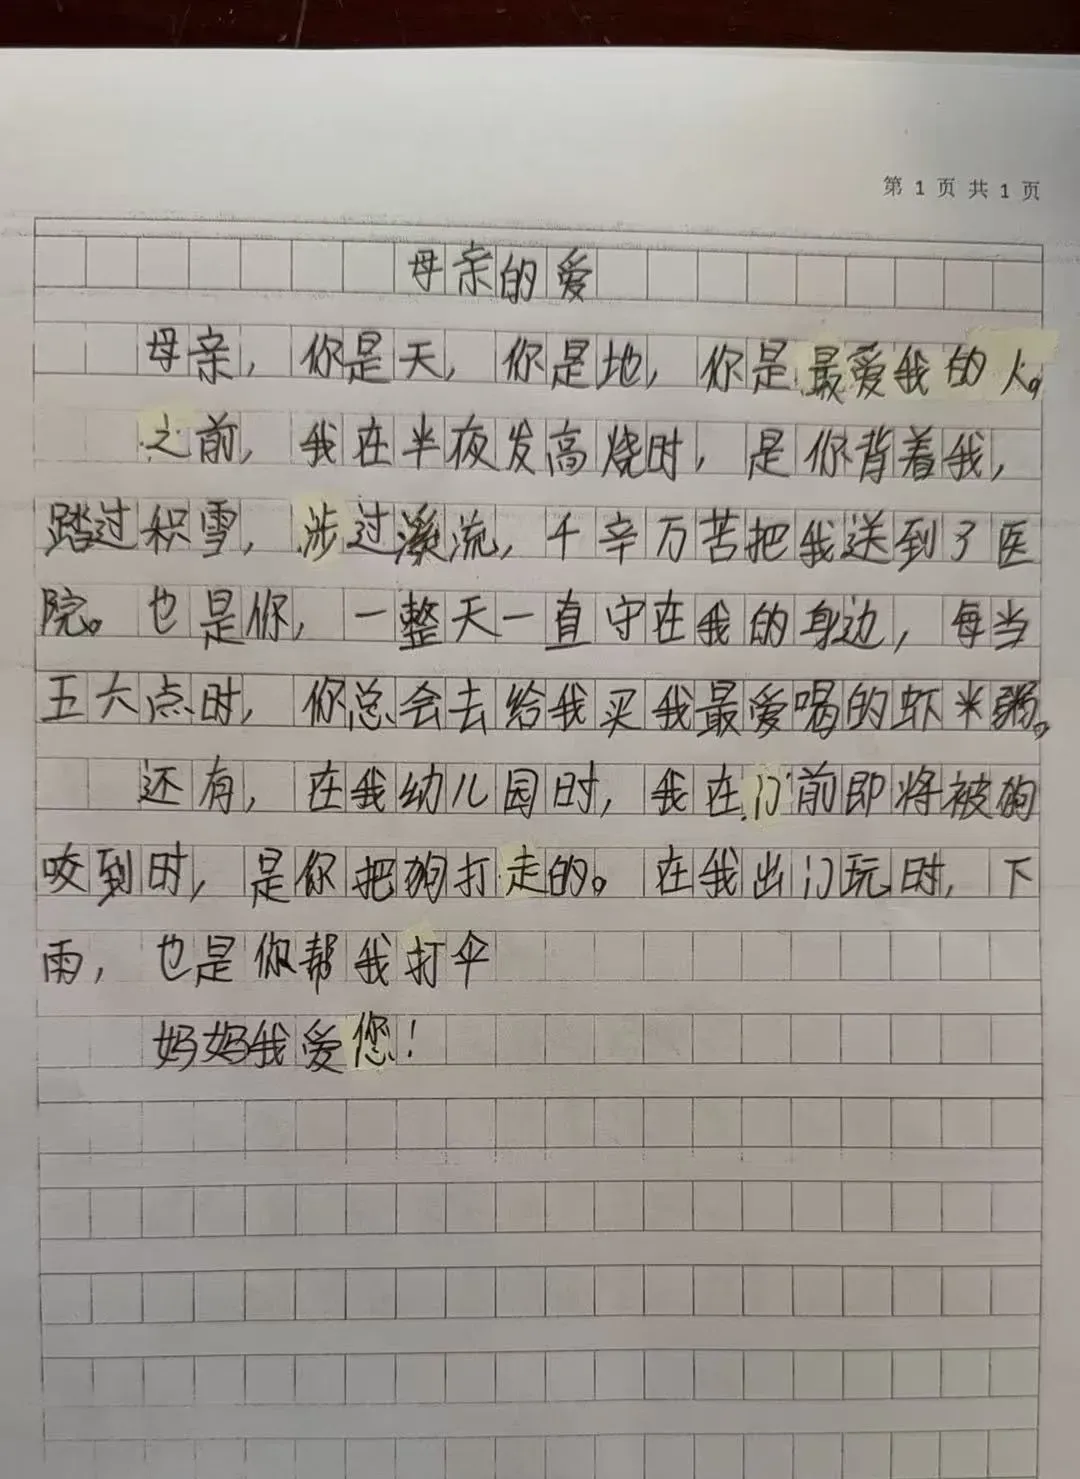 第 1 页 共 1 页
母亲的爱
母亲，你是天，你是地，你是最爱我的人。
之前，我在半夜发高烧时，是你背着我，
踏过积雪，涉过溪流，千辛万苦把我送到了医
院。也是你，一整天一直守在我的身边，每当
五六点时，你总会去给我买我最爱喝的虾米粥。
还有，在我幼儿园时，我在门前即将被狗
咬到时，是你把狗打走的。在我出门玩时，下
雨，也是你帮我打伞
妈妈我爱您！